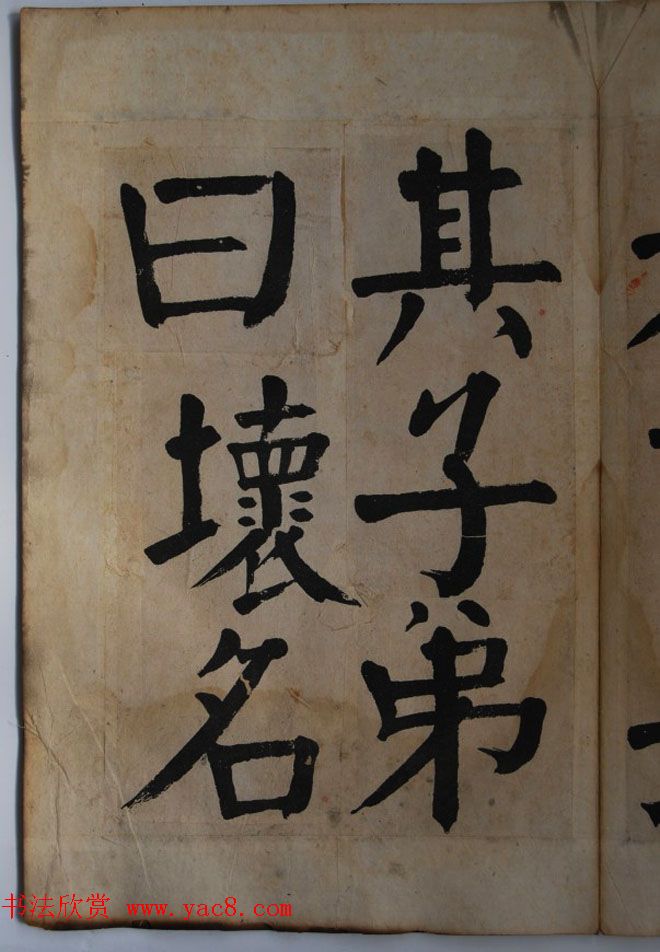 其子弟
曰壞名
书法欣赏 www.yac8.com